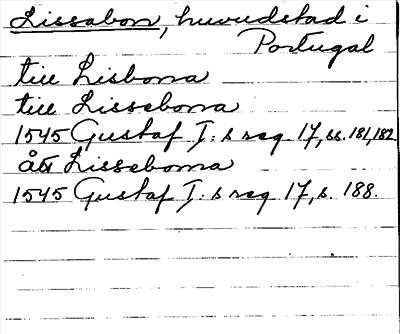 Lissabon, huvudstad i
Portugal
till Lisbona
till Lissebona
1545 Gustaf I:s reg 17, ss. 181, 182
åt Lissebona
1545 Gustaf I:s reg 17, s. 188.